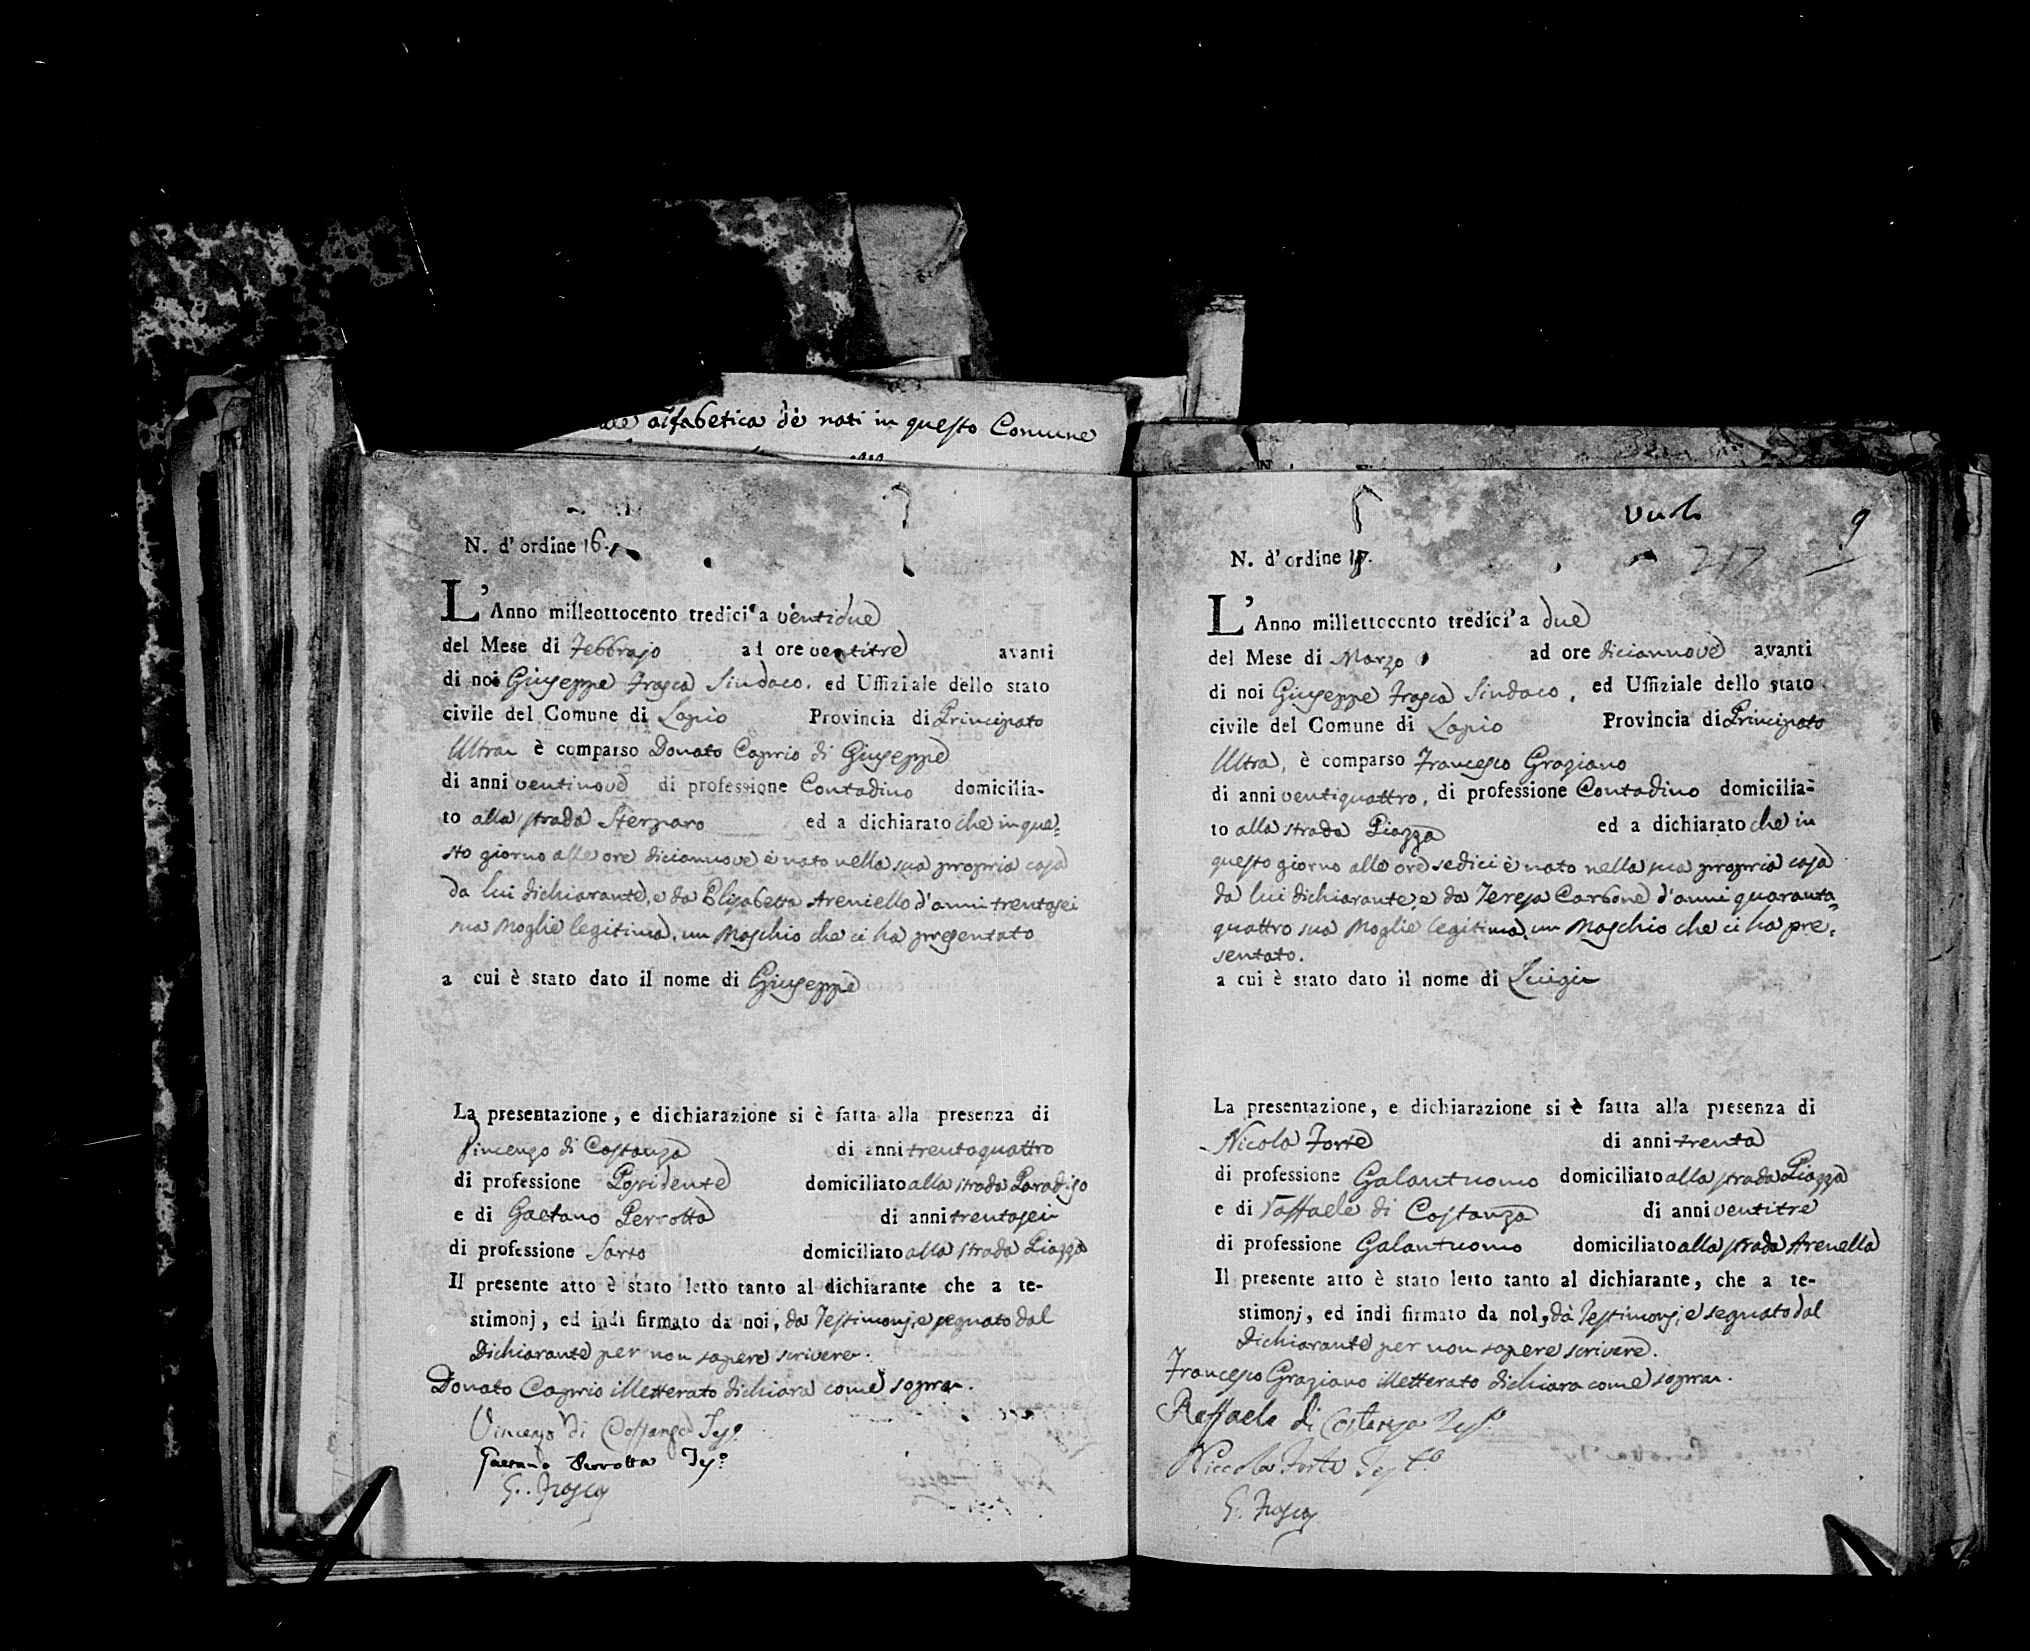 alfabetica de nati in questo Comune
N. d'ordine 16.
L'Anno milleottocento tredici a ventidue
del Mese di Febbrajo ad ore ventitre avanti
di noi Giuseppe Frasca Sindaco, ed Uffiziale dello stato
civile del Comune di Lapio Provincia di Principato
Ultra è comparso Donato Caprio di Giuseppe
di anni ventinove di professione Contadino domicilia-
to alla strada Sterparo ed a dichiarato che in que=
sto giorno alle ore diciannove è nato nella sua propria casa
da lui dichiarante, e da Elisabetta Areniello d'anni trentasei
sua Moglie legitima, un Maschio che ci ha presentato
a cui è stato dato il nome di Giuseppe
La presentazione, e dichiarazione si è fatta alla presenza di
Vincenzo di Costanza di anni trentaquattro
di professione Possidente domiciliato alla strada Paradiso
e di Gaetano Perrotta di anni trentasei
di professione Sarto domiciliato alla strada Piazza
Il presente atto è stato letto tanto al dichiarante che a te-
stimonj, ed indi firmato da noi, da Testimonj, e segnato dal
Dichiarante per non sapere scrivere.
Donato Caprio illetterato dichiara come sopra.
Vincenzo di Costanza Tesº
Gaetano Perrotta Tesº
G. Frasca
9
217
N. d'ordine 17.
L'Anno millettocento tredici a due
del Mese di Marzo ad ore diciannove avanti
di noi Giuseppe Frasca Sindaco, ed Uffiziale dello stato
civile del Comune di Lapio Provincia di Principato
Ultra, è comparso Francesco Graziano
di anni ventiquattro, di professione Contadino domicilia-
to alla strada Piazza ed a dichiarato che in
questo giorno alle ore sedici è nato nella sua propria casa
da lui dichiarante e da Teresa Carbone d'anni quaranta=
quattro sua Moglie legitima, un Maschio che ci ha pre=
sentato.
a cui è stato dato il nome di Luigi
La presentazione, e dichiarazione si è fatta alla presenza di
Nicola Forte di anni trenta
di professione Galantuomo domiciliato alla strada Piazza
e di Raffaele di Costanza di anni ventitre
di professione Galantuomo domiciliato alla strada Arenella
Il presente atto è stato letto tanto al dichiarante, che a te-
stimonj, ed indi firmato da noi, da Testimonj, e segnato dal
Dichiarante per non sapere scrivere.
Francesco Graziano illetterato dichiara come sopra.
Raffaele di Costanza Tesº
Niccola Forte Testº
G. Frasca